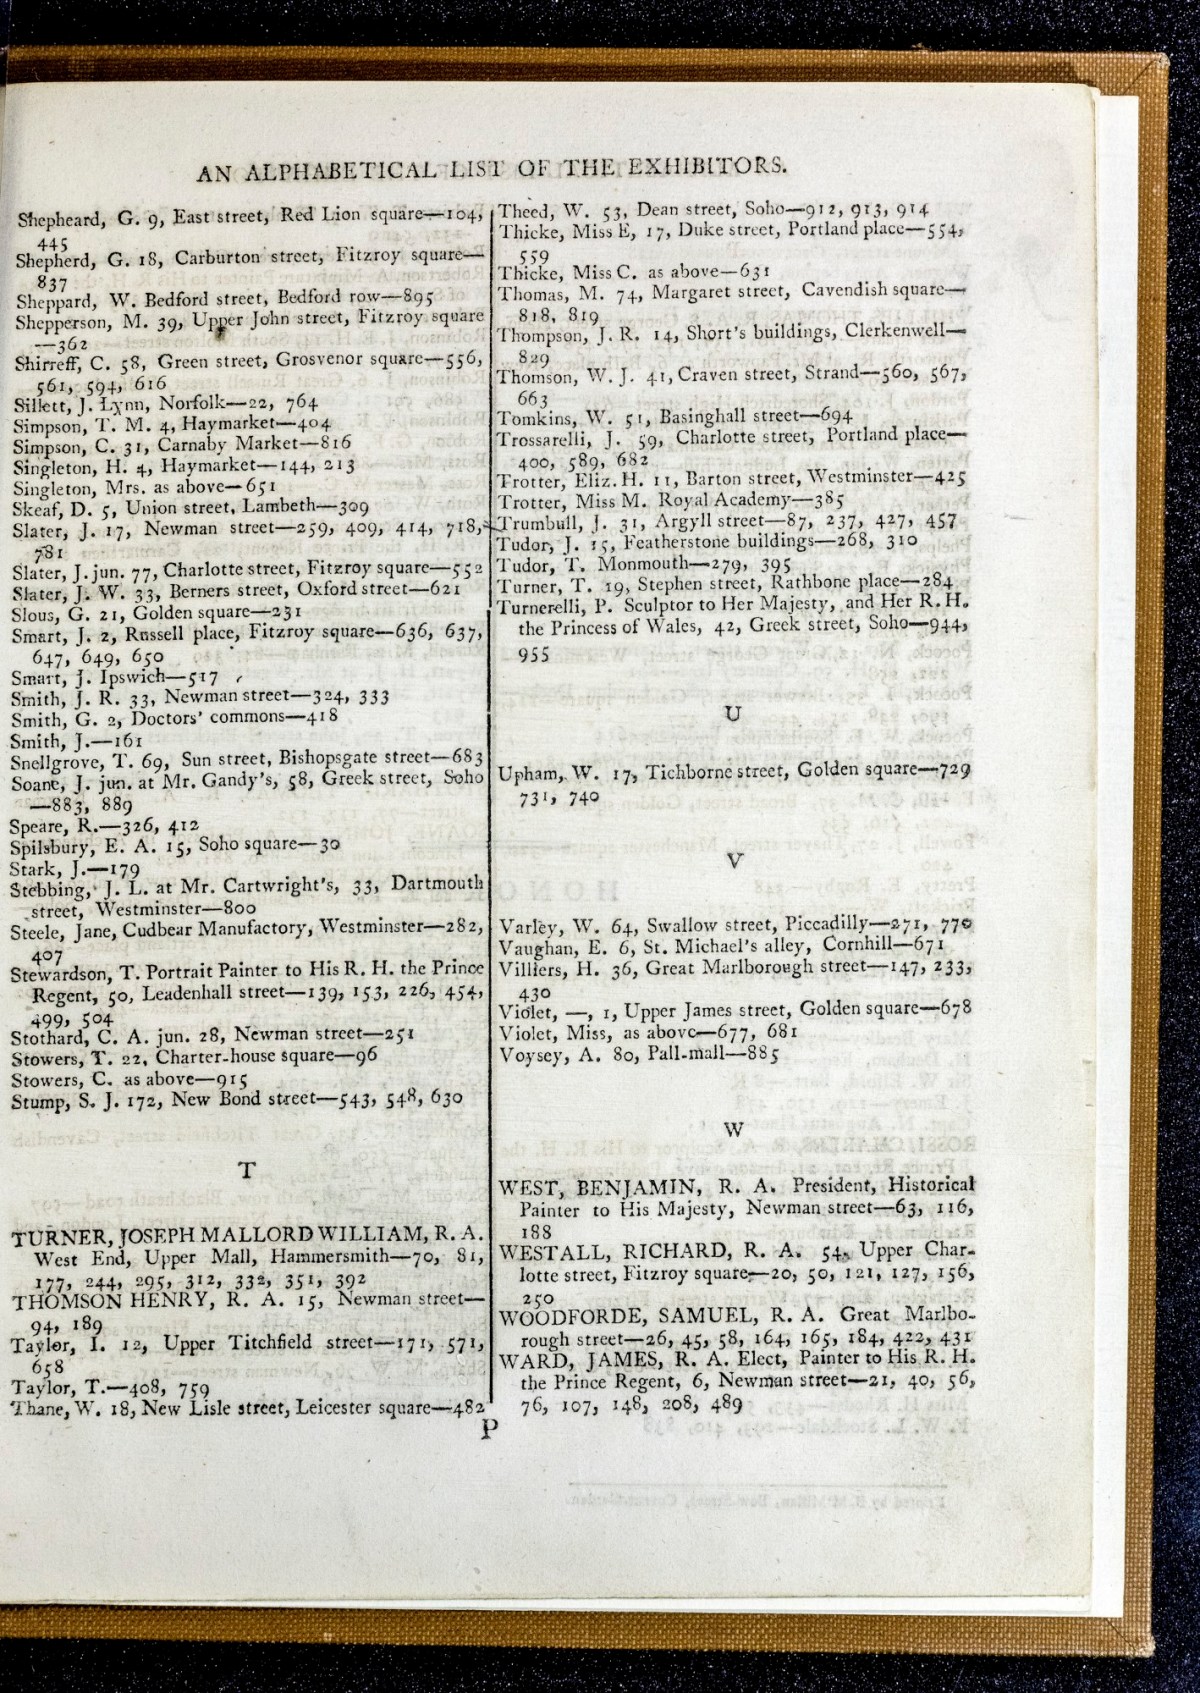 AN ALPHABETICAL LIST OF THE EXHIBITORS.
Shepheard, G. 9, East street, Red Lion square—104,
445
Shepherd, G. 18, Carburton street, Fitzroy square—
837
Sheppard, W. Bedford street, Bedford row—895
Shepperson, M. 39, Upper John street, Fitzroy square
—362
Shirreff, C. 58, Green street, Grosvenor square—556,
561, 594, 616
Sillett, J. Lynn, Norfolk—22, 764
Simpson, T. M. 4, Haymarket—404
Simpson, C. 31, Carnaby Market—816
Singleton, H. 4, Haymarket—144, 213
Singleton, Mrs. as above—651
Skeaf, D. 5, Union street, Lambeth—309
Slater, J. 17, Newman street—259, 409, 414, 718,
781
Slater, J. jun. 77, Charlotte street, Fitzroy square—552
Slater, J. W. 33, Berners street, Oxford street—621
Slous, G. 21, Golden square—231
Smart, J. 2, Russell place, Fitzroy square—636, 637,
647, 649, 650
Smart, J. Ipswich—517
Smith, J. R. 33, Newman street—324, 333
Smith, G. 2, Doctors' commons—418
Smith, J.—161
Snellgrove, T. 69, Sun street, Bishopsgate street—683
Soane, J. jun. at Mr. Gandy's, 58, Greek street, Soho
—883, 889
Speare, R.—326, 412
Spilsbury, E. A. 15, Soho square—30
Stark, J.—179
Stebbing, J. L. at Mr. Cartwright's, 33, Dartmouth
street, Westminster—800
Steele, Jane, Cudbear Manufactory, Westminster—282,
407
Stewardson, T. Portrait Painter to His R. H. the Prince
Regent, 50, Leadenhall street—139, 153, 226, 454,
499, 504
Stothard, C. A. jun. 28, Newman street—251
Stowers, T. 22, Charter-house square—96
Stowers, C. as above—915
Stump, S. J. 172, New Bond street—543, 548, 630
T
TURNER, JOSEPH MALLORD WILLIAM, R. A.
West End, Upper Mall, Hammersmith—70, 81,
177, 244, 295, 312, 332, 351, 392
THOMSON HENRY, R. A. 15, Newman street—
94, 189
Taylor, I. 12, Upper Titchfield street—171, 571,
658
Taylor, T.—408, 759
Thane, W. 18, New Lisle street, Leicester square—482
Theed, W. 53, Dean street, Soho—912, 913, 914
Thicke, Miss E, 17, Duke street, Portland place—554,
559
Thicke, Miss C. as above—631
Thomas, M. 74, Margaret street, Cavendish square—
818, 819
Thompson, J. R. 14, Short's buildings, Clerkenwell—
829
Thomson, W. J. 41, Craven street, Strand—560, 567,
663
Tomkins, W. 51, Basinghall street—694
Trossarelli, J. 59, Charlotte street, Portland place—
400, 589, 682
Trotter, Eliz. H. 11, Barton street, Westminster—425
Trotter, Miss M. Royal Academy—385
Trumbull, J. 31, Argyll street—87, 237, 427, 457
Tudor, J. 15, Featherstone buildings—268, 310
Tudor, T. Monmouth—279, 395
Turner, T. 19, Stephen street, Rathbone place—284
Turnerelli, P. Sculptor to Her Majesty, and Her R. H.
the Princess of Wales, 42, Greek street, Soho—944,
955
U
Upham, W. 17, Tichborne street, Golden square—729
731, 740
V
Varley, W. 64, Swallow street, Piccadilly—271, 770
Vaughan, E. 6, St. Michael's alley, Cornhill—671
Villiers, H. 36, Great Marlborough street—147, 233,
430
Violet, —, 1, Upper James street, Golden square—678
Violet, Miss, as above—677, 681
Voysey, A. 80, Pall-mall—885
W
WEST, BENJAMIN, R. A. President, Historical
Painter to His Majesty, Newman street—63, 116,
188
WESTALL, RICHARD, R. A. 54, Upper Char-
lotte street, Fitzroy square,—20, 50, 121, 127, 156,
250
WOODFORDE, SAMUEL, R. A. Great Marlbo-
rough street—26, 45, 58, 164, 165, 184, 422, 431
WARD, JAMES, R. A. Elect, Painter to His R. H.
the Prince Regent, 6, Newman street—21, 40, 56,
76, 107, 148, 208, 489
P